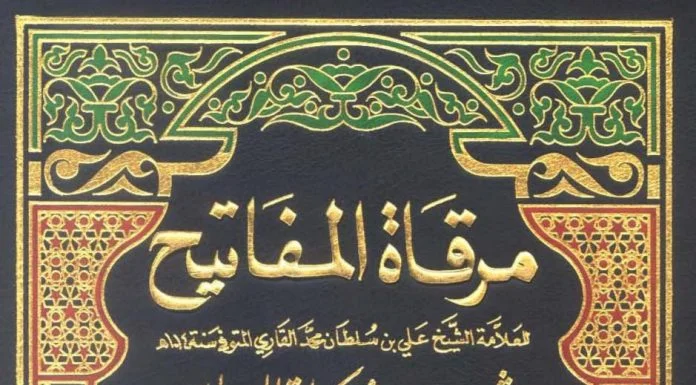 مرقاة المفاتيح
للعلامة الشيخ علي بن سلطان محمد القاري المتوفى سنة ١٠١٤هـ
شرح مشكاة المصابيح